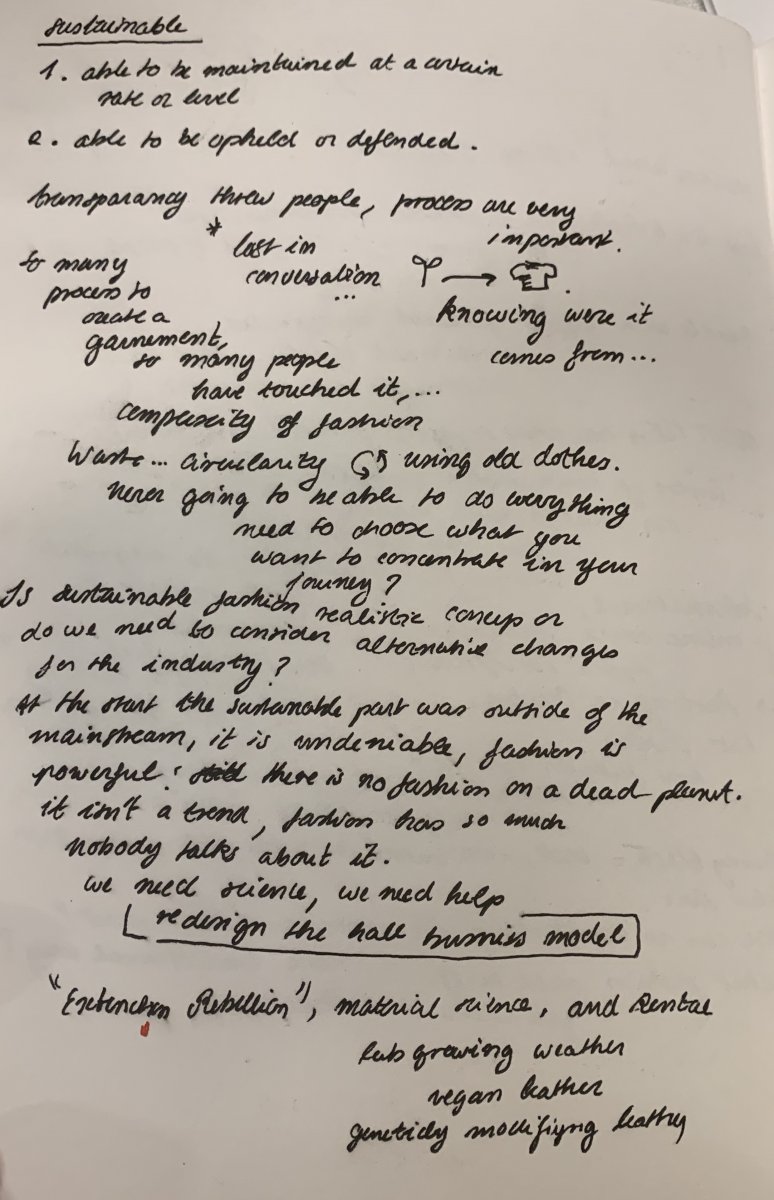 sustainable
1. able to be maintained at a certain
rate or level
2. able to be upheld or defended.
transparancy threw people, process are very
important.
* lost in
conversation
...
so many
process to
create a
garnement,
so many people
have touched it,...
knowing were it
comes from...
complexity of fashion
Waste... circularity using old clothes.
never going to be able to do everything
need to choose what you
want to concentrate in your
journey?
Is sustainable fashion realistic concep or
do we need to consider alternative changes
for the industry?
At the start the sustainable part was outside of the
mainstream, it is undeniable, fashion is
powerful! there is no fashion on a dead planet.
it isn't a trend, fashion has so much
nobody talks about it.
we need science, we need help
redesign the hall business model
"Extinction Rebellion", material science, and Rental
lab growing weather
vegan leather
modifiyng